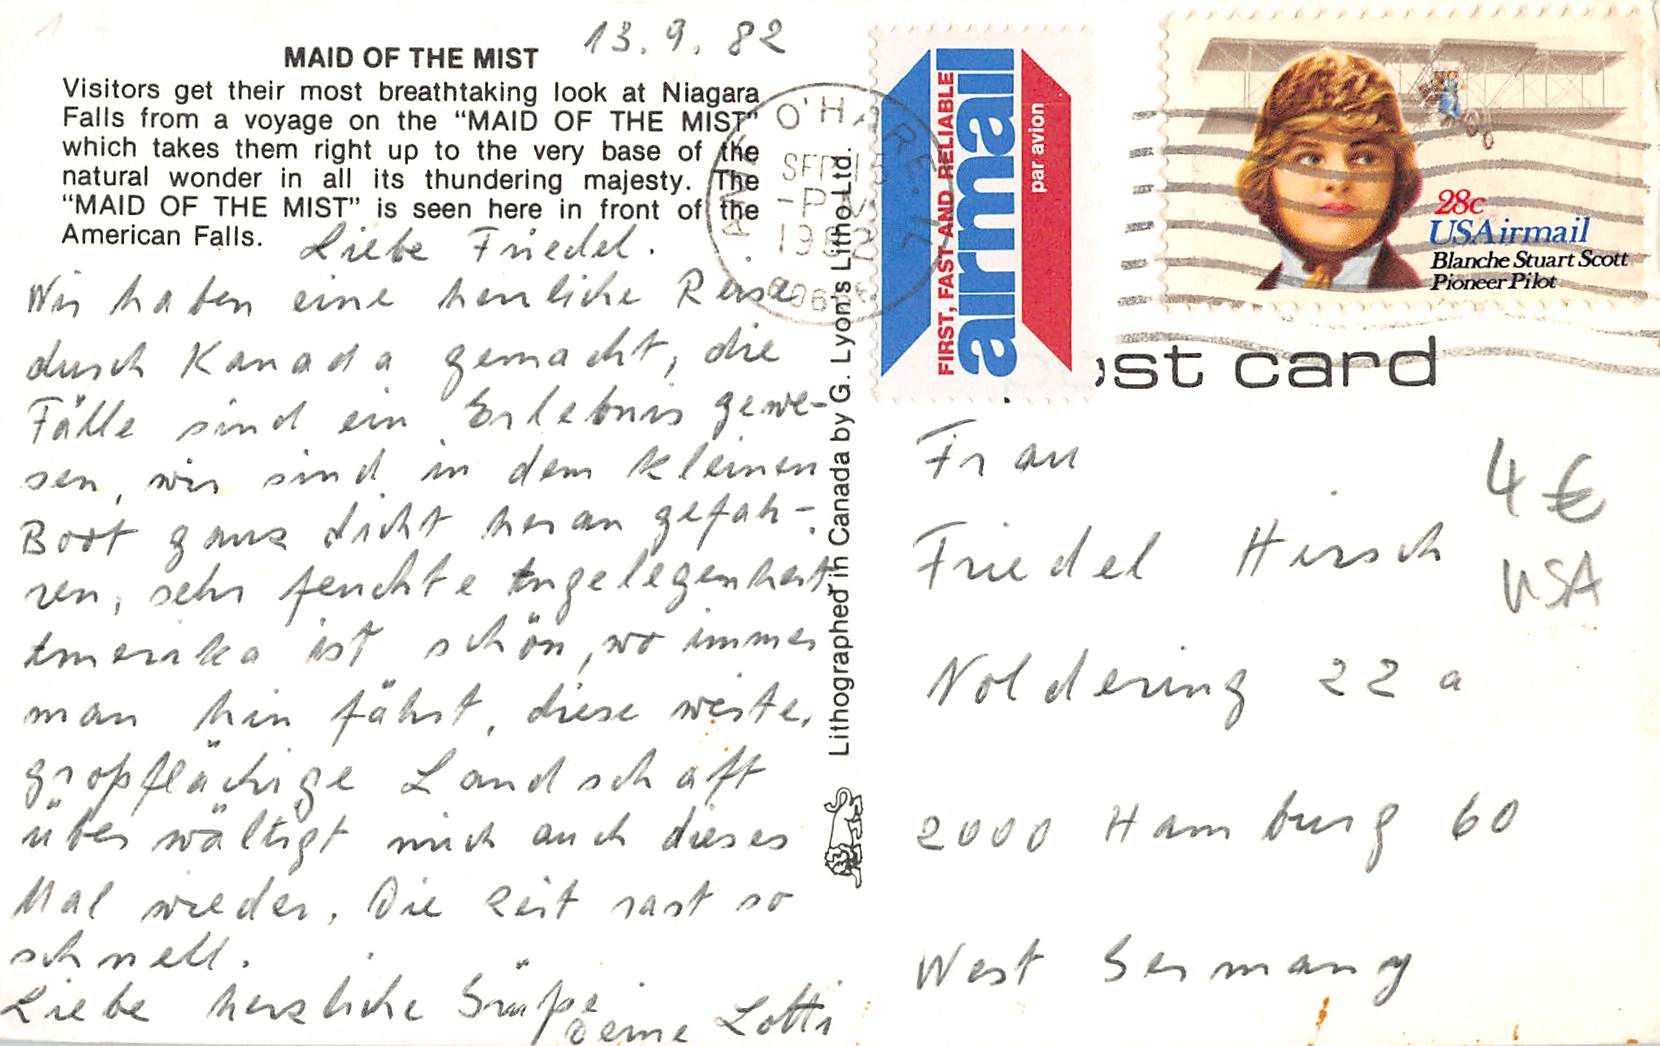 13.9.82
MAID OF THE MIST
Visitors get their most breathtaking look at Niagara
Falls from a voyage on the "MAID OF THE MIST"
which takes them right up to the very base of the
natural wonder in all its thundering majesty. The
"MAID OF THE MIST" is seen here in front of the
American Falls.
Liebe Friedel.
Wir haben eine herrliche Reise
durch Kanada gemacht, die
Fälle sind ein Erlebnis gewe-
sen, wir sind in dem kleinen
Boot ganz dicht heran gefah-
ren, sehr feuchte Angelegenheit
Amerika ist schön, wo immer
man hin fährt, diese weite,
großflächige Landschaft
überwältigt mich auch dieses
Mal wieder. Die Zeit rast so
schnell.
Liebe herzliche Grüße
Deine Lotti
Lithographed in Canada by G. Lyon's Litho Ltd.
O'HARE, IL
SEP 15
PM
1982
FIRST, FAST AND RELIABLE
airmail
par avion
28c
USAirmail
Blanche Stuart Scott
Pioneer Pilot
post card
Frau
Friedel Hirsch
Noldering 22 a
2000 Hamburg 60
West Germany
4 €
USA